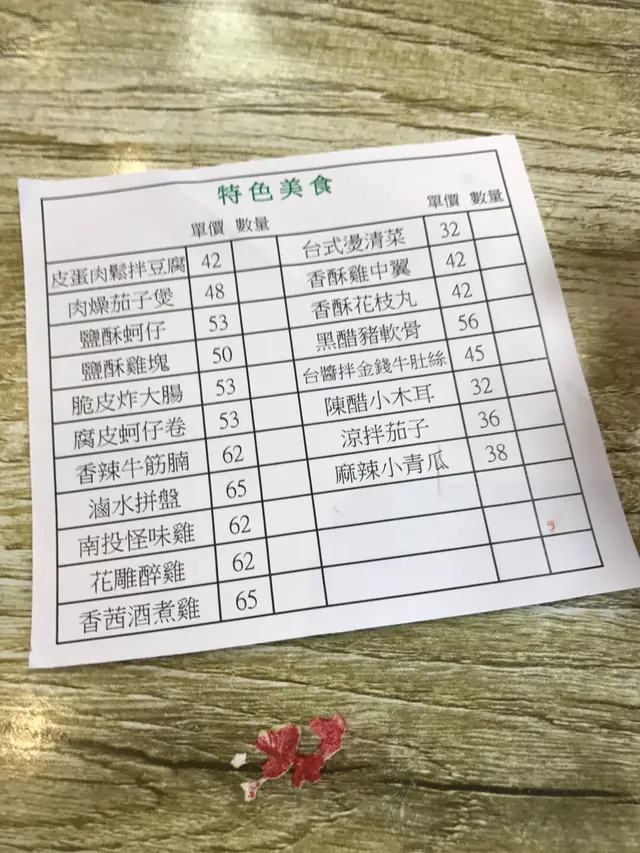 特色美食
單價 數量 單價 數量
皮蛋肉鬆拌豆腐 42 台式燙清菜 32
肉燥茄子煲 48 香酥雞中翼 42
鹽酥蚵仔 53 香酥花枝丸 42
鹽酥雞塊 50 黑醋豬軟骨 56
脆皮炸大腸 53 台醬拌金錢牛肚絲 45
腐皮蚵仔卷 53 陳醋小木耳 32
香辣牛筋腩 62 涼拌茄子 36
滷水拼盤 65 麻辣小青瓜 38
南投怪味雞 62
花雕醉雞 62
香茜酒煮雞 65